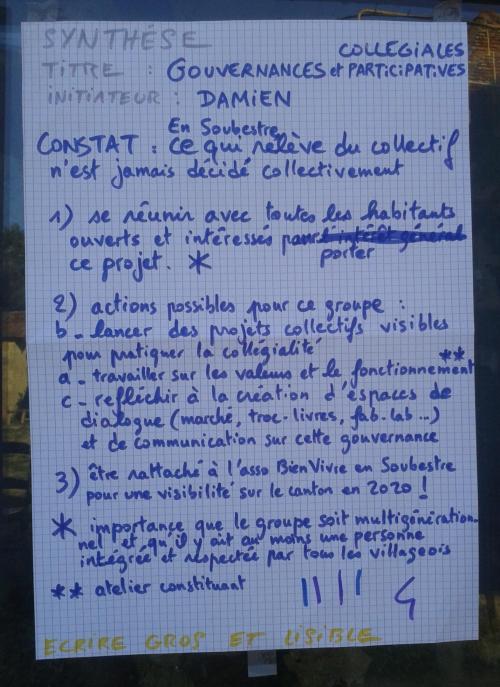 SYNTHÉSE
COLLEGIALES
TITRE : GOUVERNANCES et PARTICIPATIVES
INITIATEUR : DAMIEN
En Soubestre
CONSTAT : ce qui relève du collectif
n'est jamais décidé collectivement
1) se réunir avec toutes les habitants
ouverts et intéressés pour l'intérêt général
porter
ce projet. *
2) actions possibles pour ce groupe :
b - lancer des projets collectifs visibles
pour pratiquer la collégialité
a - travailler sur les valeurs et le fonctionnement **
c - refléchir à la création d'espaces de
dialogue (marché, troc-livres, fab-lab...)
et de communication sur cette gouvernance
3) être rattaché à l'asso BienVivre en Soubestre
pour une visibilité sur le canton en 2020 !
* importance que le groupe soit multigénération-
nel et qu'il y ait au moins une personne
intégrée et respectée par tous les villageois
** atelier constituant
ECRIRE GROS ET LISIBLE